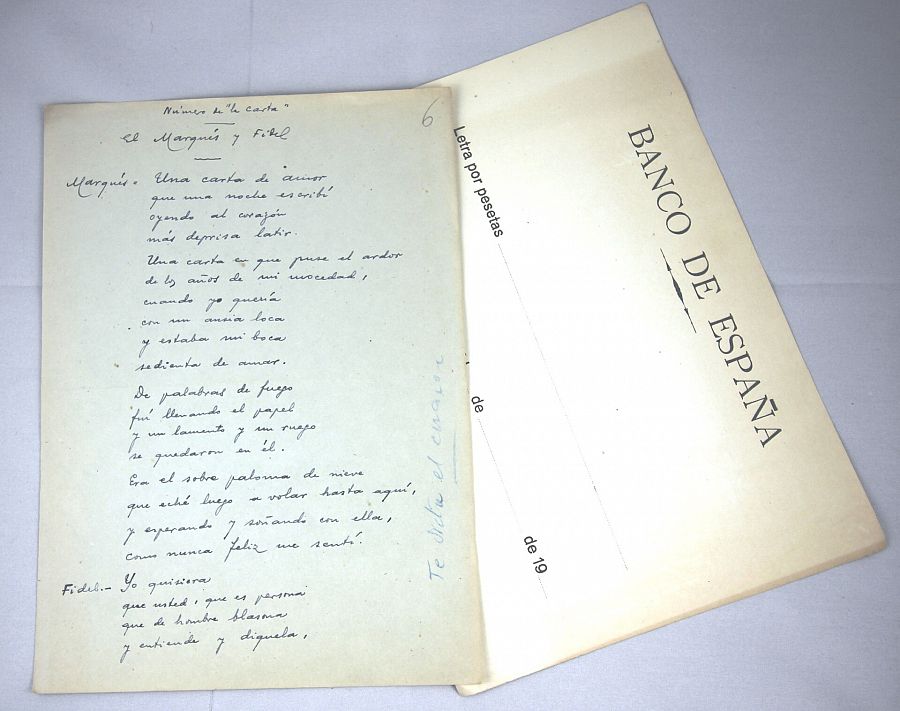 Número de "la carta"
6
El Marqués y Fidel
Marqués = Una carta de amor
que una noche escribí
oyendo al corazón
más deprisa latir.
Una carta en que puse el ardor
de los años de mi mocedad,
cuando yo quería
con un ansia loca
y estaba mi boca
sedienta de amar.
De palabras de fuego
fuí llenando el papel
y un lamento y un ruego
se quedaron en él.
Era el sobre paloma de nieve
que eché luego a volar hasta aquí,
y esperando y soñando con ella,
como nunca feliz me sentí.
Fidel.- Yo quisiera
que usted, que es persona
que de hombre blasona
y entiende y diquela,
Te el
BANCO DE ESPAÑA
Letra por pesetas
de
de 19